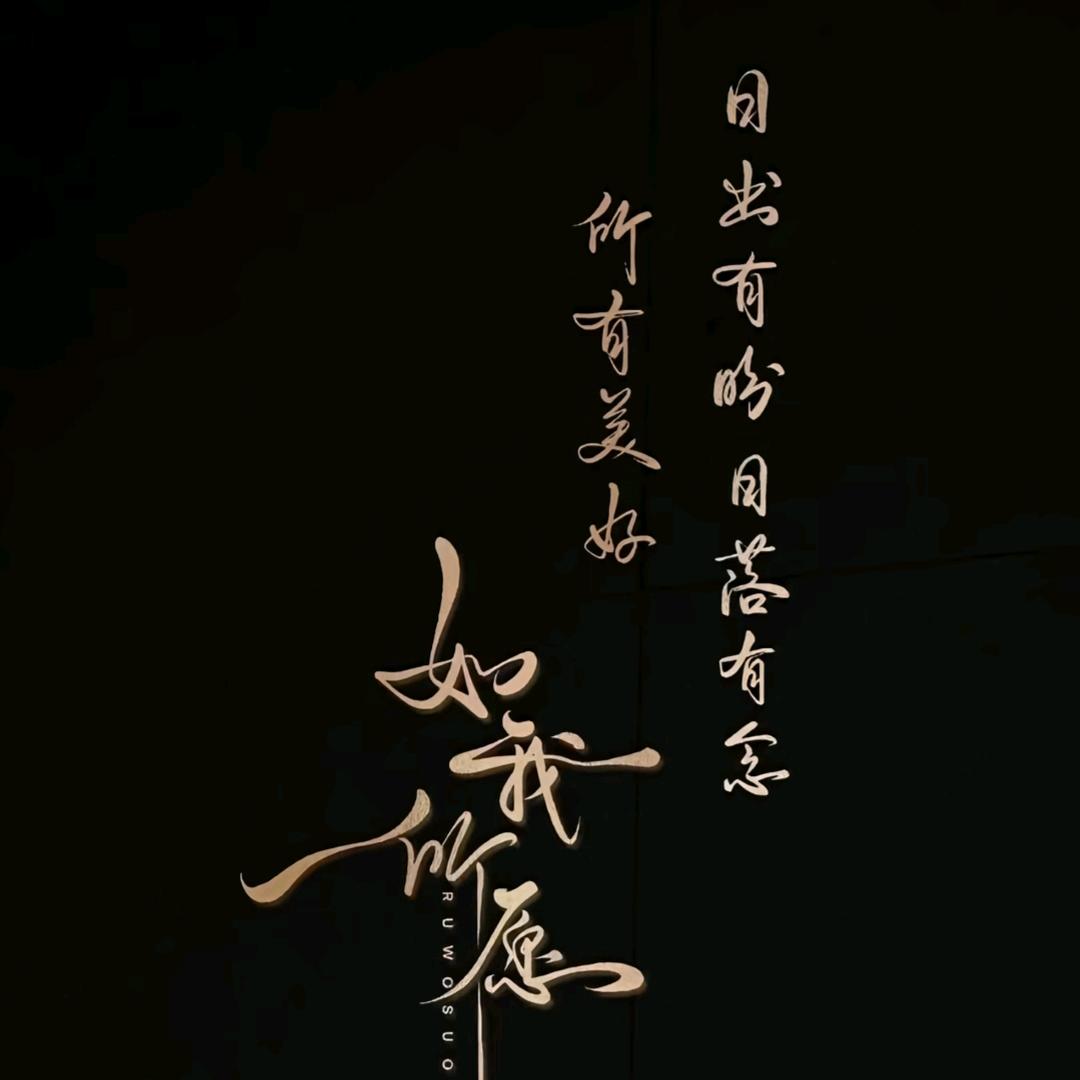 日出有盼 日落有念
所有美好
如我所愿
RUWOSUO